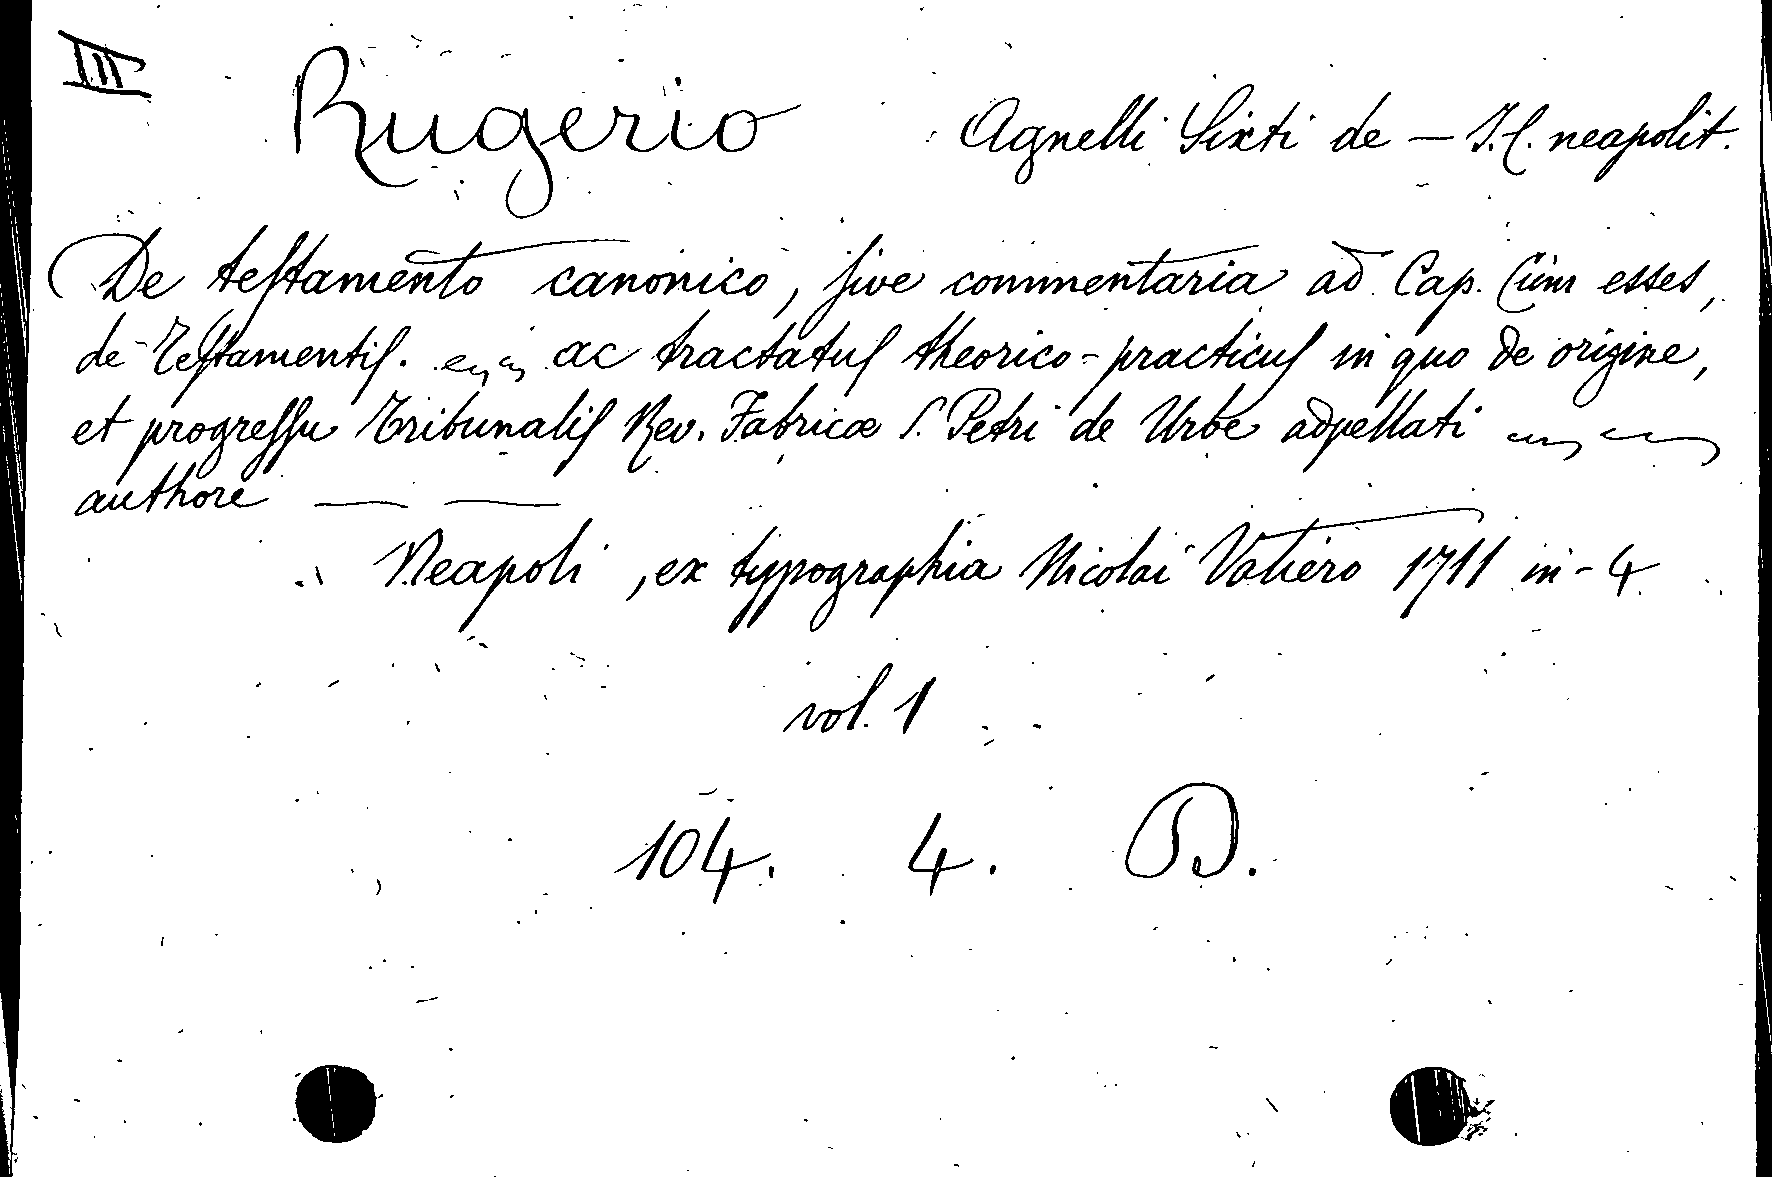 III
Rugerio Agnelli Sixti de — J.C. neapolit.
De teſtamento canonico, ſive commentaria ad Cap. Cùm esses,
de Teſtamentiſ. ac tractatuſ theorico-practicuſ in quo de origine,
et progreſſu Tribunaliſ Rev. Fabricæ S. Petri de Urbe adpellati
authore — —
Neapoli, ex typographia Nicolai Valiero 1711 in-4
vol. 1
104. 4. D.